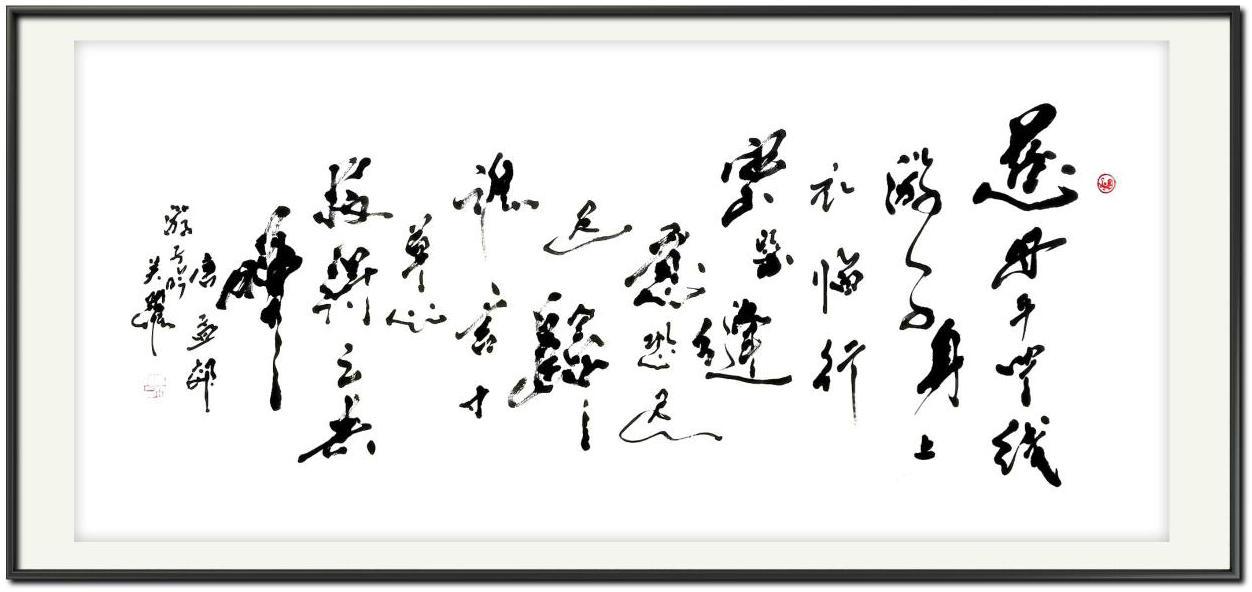 慈母手中线
游子身上
衣临行
密密缝
意恐迟
迟歸
谁言寸
草心
报得三春
晖
唐孟郊
游子吟